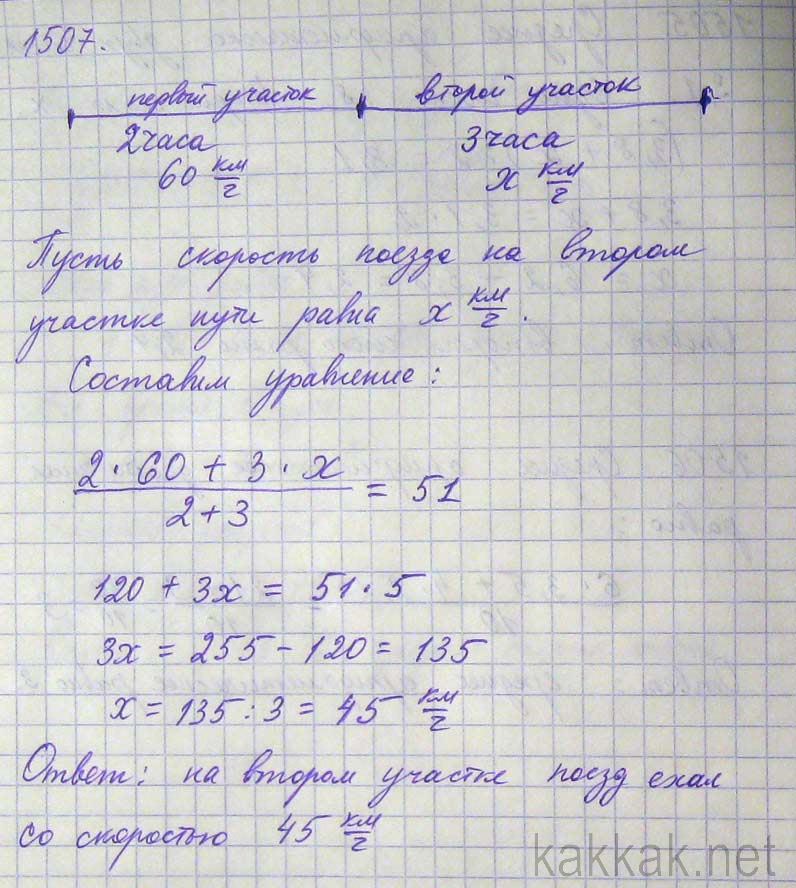 1507.
первый участок второй участок
2 часа 3 часа
60 км/ч x км/ч
Пусть скорость поезда на втором
участке пути равна x км/ч.
Составим уравнение:
2 · 60 + 3 · x
2 + 3
= 51
120 + 3x = 51 · 5
3x = 255 - 120 = 135
x = 135 : 3 = 45 км/ч
Ответ: на втором участке поезд ехал
со скоростью 45 км/ч
kakkak.net